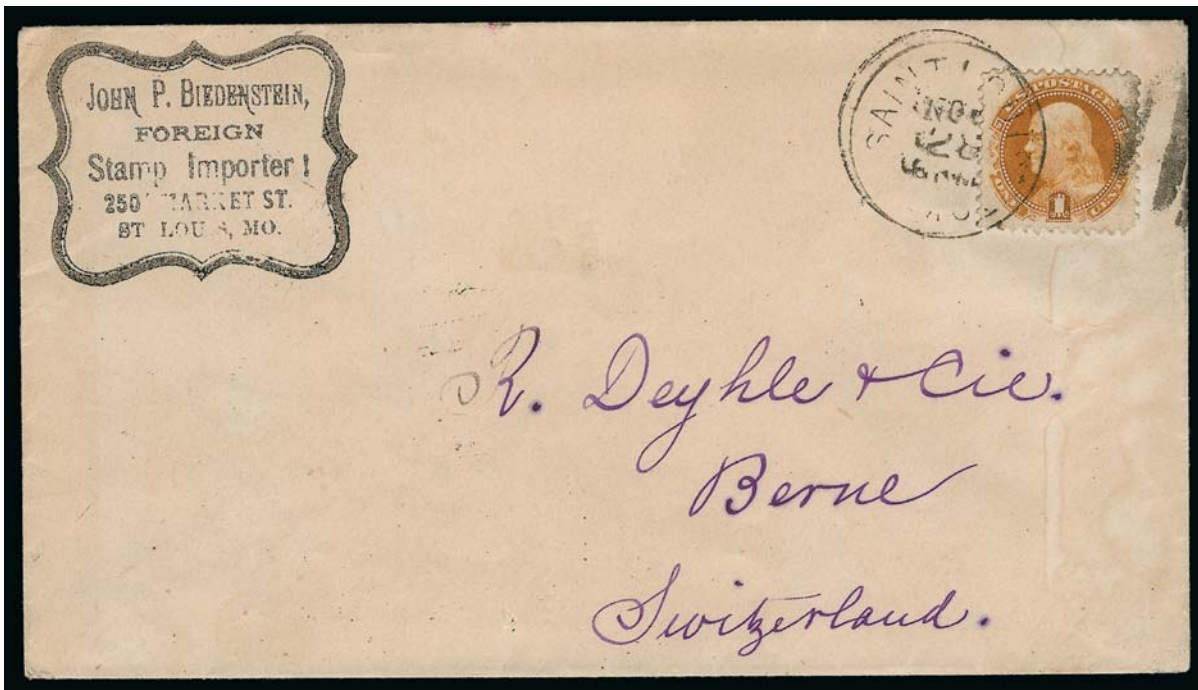 JOHN P. BIEDENSTEIN,
FOREIGN
Stamp Importer!
250 MARKET ST.
ST LOUIS, MO.
SAINT LOUIS
MO.
U.S. POSTAGE
1
R. Deyhle & Cie.
Berne
Switzerland.